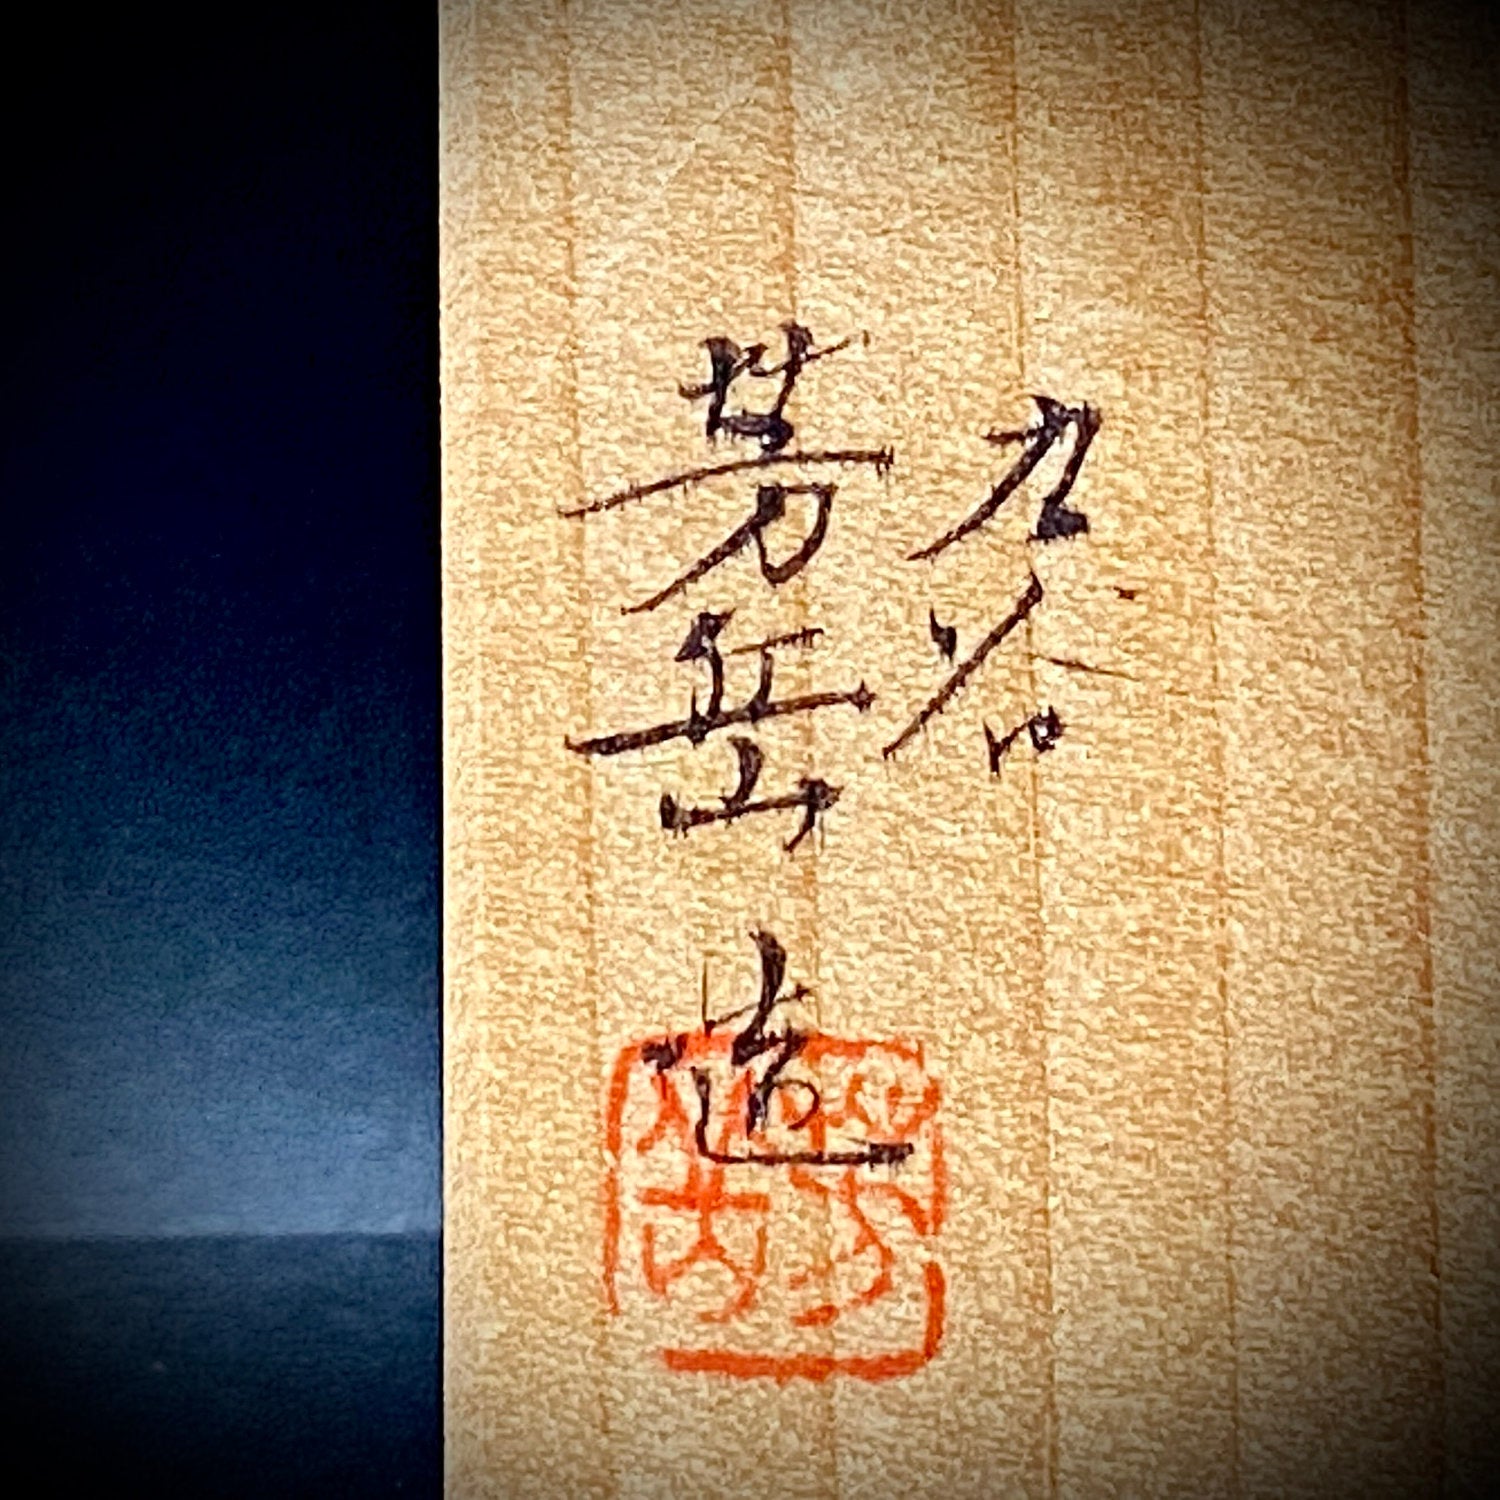 九谷
芳岳造